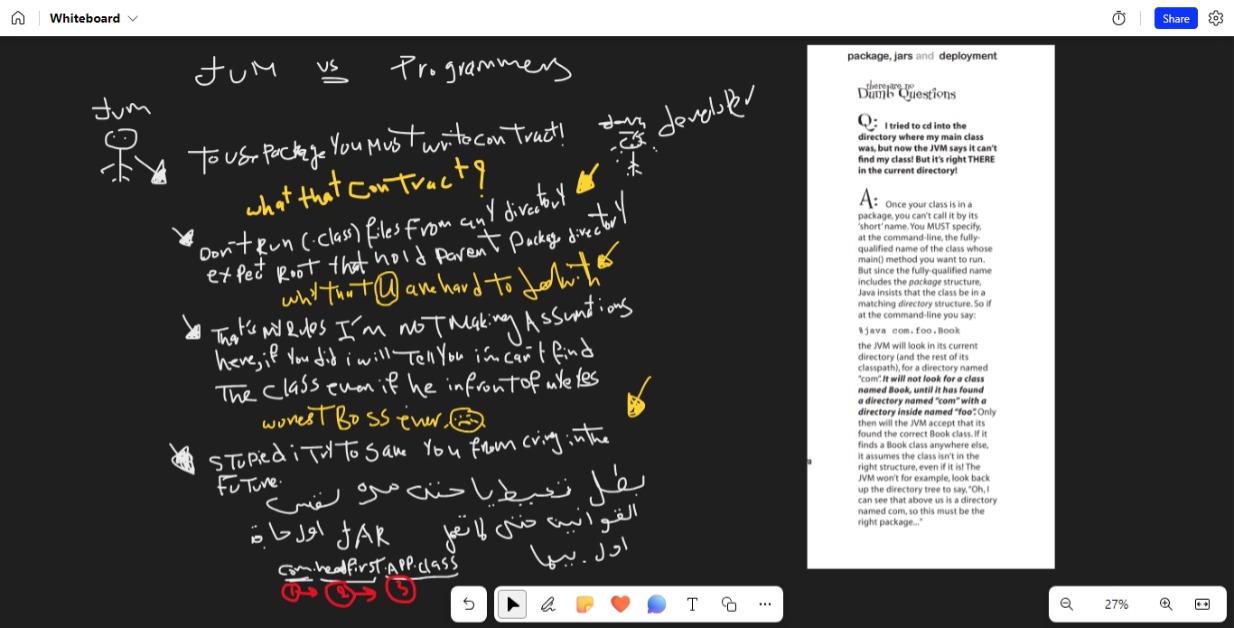 Whiteboard
Share
JVM vs Programmers
Jvm
developer
To use Package You Must write contract!
what that contract?
Don't Run (.class) files from any directory
expect Root that hold parent Package directory
why that U are hard to
That's My Rules I'm not Making Assumtions
here, if You did i will Tell You i'm can't find
The class even if he in front of
worest Boss ever.
stupied i Try To save You from cring in the
Future.
بطل تعيط يا
القوانين
JAR اول حاجة
com.headfirst.APP.class
1 2 3
package, jars and deployment
there are no
Dumb Questions
Q: I tried to cd into the
directory where my main class
was, but now the JVM says it can't
find my class! But it's right THERE
in the current directory!
A: Once your class is in a
package, you can't call it by its
'short' name. You MUST specify,
at the command-line, the fully-
qualified name of the class whose
main() method you want to run.
But since the fully-qualified name
includes the package structure,
Java insists that the class be in a
matching directory structure. So if
at the command-line you say:
%java com.foo.Book
the JVM will look in its current
directory (and the rest of its
classpath), for a directory named
"com". It will not look for a class
named Book, until it has found
a directory named "com" with a
directory inside named "foo". Only
then will the JVM accept that its
found the correct Book class. If it
finds a Book class anywhere else,
it assumes the class isn't in the
right structure, even if it is! The
JVM won't for example, look back
up the directory tree to say, "Oh, I
can see that above us is a directory
named com, so this must be the
right package..."
T
27%